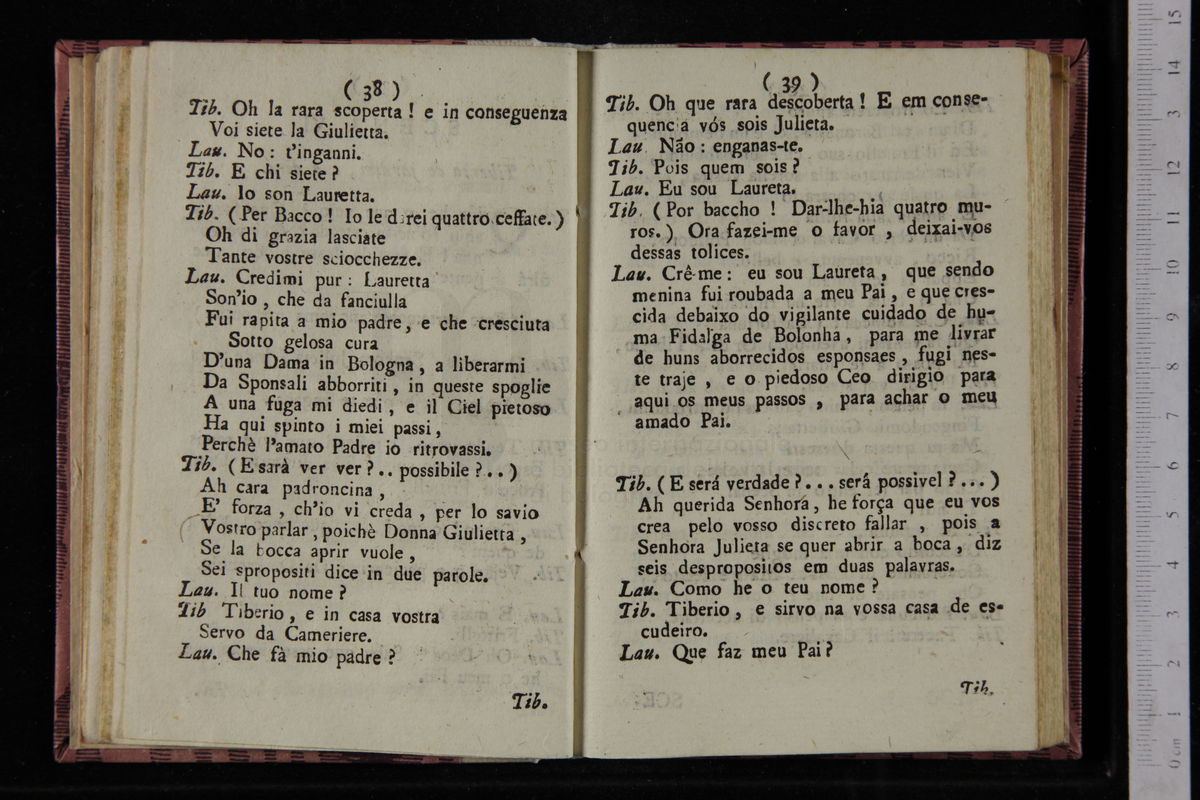 ( 38 )
Tib. Oh la rara scoperta ! e in conseguenza
Voi siete la Giulietta.
Lau. No : t'inganni.
Tib. E chi siete ?
Lau. Io son Lauretta.
Tib. ( Per Bacco ! Io le darei quattro ceffate. )
Oh di grazia lasciate
Tante vostre sciocchezze.
Lau. Credimi pur : Lauretta
Son'io , che da fanciulla
Fui rapita a mio padre, e che cresciuta
Sotto gelosa cura
D'una Dama in Bologna , a liberarmi
Da Sponsali abborriti , in queste spoglie
A una fuga mi diedi , e il Ciel pietoso
Ha qui spinto i miei passi ,
Perchè l'amato Padre io ritrovassi.
Tib. ( E sarà ver ver ? . . possibile ? . . )
Ah cara padroncina ,
E' forza , ch'io vi creda , per lo savio
Vostro parlar , poichè Donna Giulietta ,
Se la bocca aprir vuole ,
Sei spropositi dice in due parole.
Lau. Il tuo nome ?
Tib Tiberio , e in casa vostra
Servo da Cameriere.
Lau. Che fà mio padre ?
Tib.
( 39 )
Tib. Oh que rara descoberta ! E em conse-
quencia vós sois Julieta.
Lau Não : enganas-te.
Tib. Pois quem sois ?
Lau. Eu sou Laureta.
Tib. ( Por baccho ! Dar-lhe-hia quatro mu-
ros. ) Ora fazei-me o favor , deixai-vos
dessas tolices.
Lau. Crê-me : eu sou Laureta , que sendo
menina fui roubada a meu Pai , e que cres-
cida debaixo do vigilante cuidado de hu-
ma Fidalga de Bolonha , para me livrar
de huns aborrecidos esponsaes , fugi nes-
te traje , e o piedoso Ceo dirigio para
aqui os meus passos , para achar o meu
amado Pai.
Tib. ( E será verdade ? . . . será possivel ? . . . )
Ah querida Senhora , he força que eu vos
crea pelo vosso discreto fallar , pois a
Senhora Julieta se quer abrir a boca , diz
seis despropositos em duas palavras.
Lau. Como he o teu nome ?
Tib. Tiberio , e sirvo na vossa casa de es-
cudeiro.
Lau. Que faz meu Pai ?
Tib.